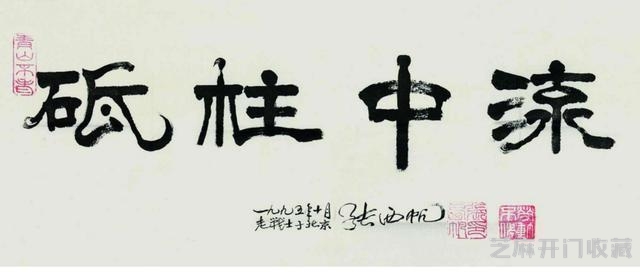 青山不老
砥柱中流
一九九五年十月
老战士于北京
张西帆
芝麻开门收藏